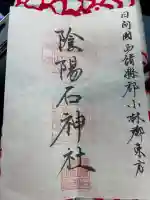 日向國西諸縣郡小林郷東方
陰陽石神社